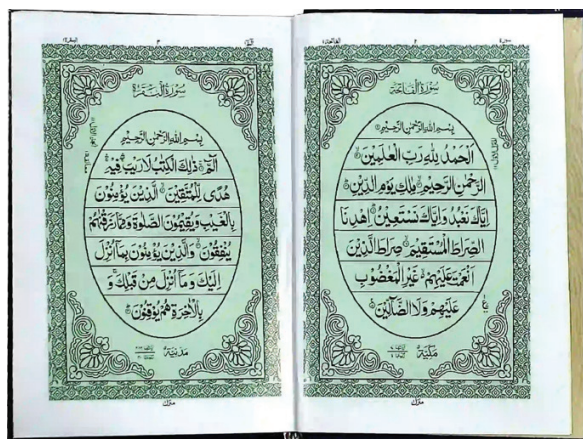 سورة الفاتحة
بِسْمِ اللهِ الرَّحْمٰنِ الرَّحِيْمِ
اَلْحَمْدُ لِلّٰهِ رَبِّ الْعٰلَمِيْنَ
الرَّحْمٰنِ الرَّحِيْمِ مٰلِكِ يَوْمِ الدِّيْنِ
اِيَّاكَ نَعْبُدُ وَاِيَّاكَ نَسْتَعِيْنُ اِهْدِنَا
الصِّرَاطَ الْمُسْتَقِيْمَ صِرَاطَ الَّذِيْنَ
اَنْعَمْتَ عَلَيْهِمْ غَيْرِ الْمَغْضُوْبِ
عَلَيْهِمْ وَلَا الضَّآلِّيْنَ
مَكِّيَّة
منزل
سورة البقرة
بِسْمِ اللهِ الرَّحْمٰنِ الرَّحِيْمِ
الٓمّٓ ذٰلِكَ الْكِتٰبُ لَا رَيْبَ فِيْهِ
هُدًى لِّلْمُتَّقِيْنَ الَّذِيْنَ يُؤْمِنُوْنَ
بِالْغَيْبِ وَيُقِيْمُوْنَ الصَّلٰوةَ وَمِمَّا رَزَقْنٰهُمْ
يُنْفِقُوْنَ وَالَّذِيْنَ يُؤْمِنُوْنَ بِمَآ اُنْزِلَ
اِلَيْكَ وَمَآ اُنْزِلَ مِنْ قَبْلِكَ وَ
بِالْاٰخِرَةِ هُمْ يُوْقِنُوْنَ
مَدَنِيَّة
منزل